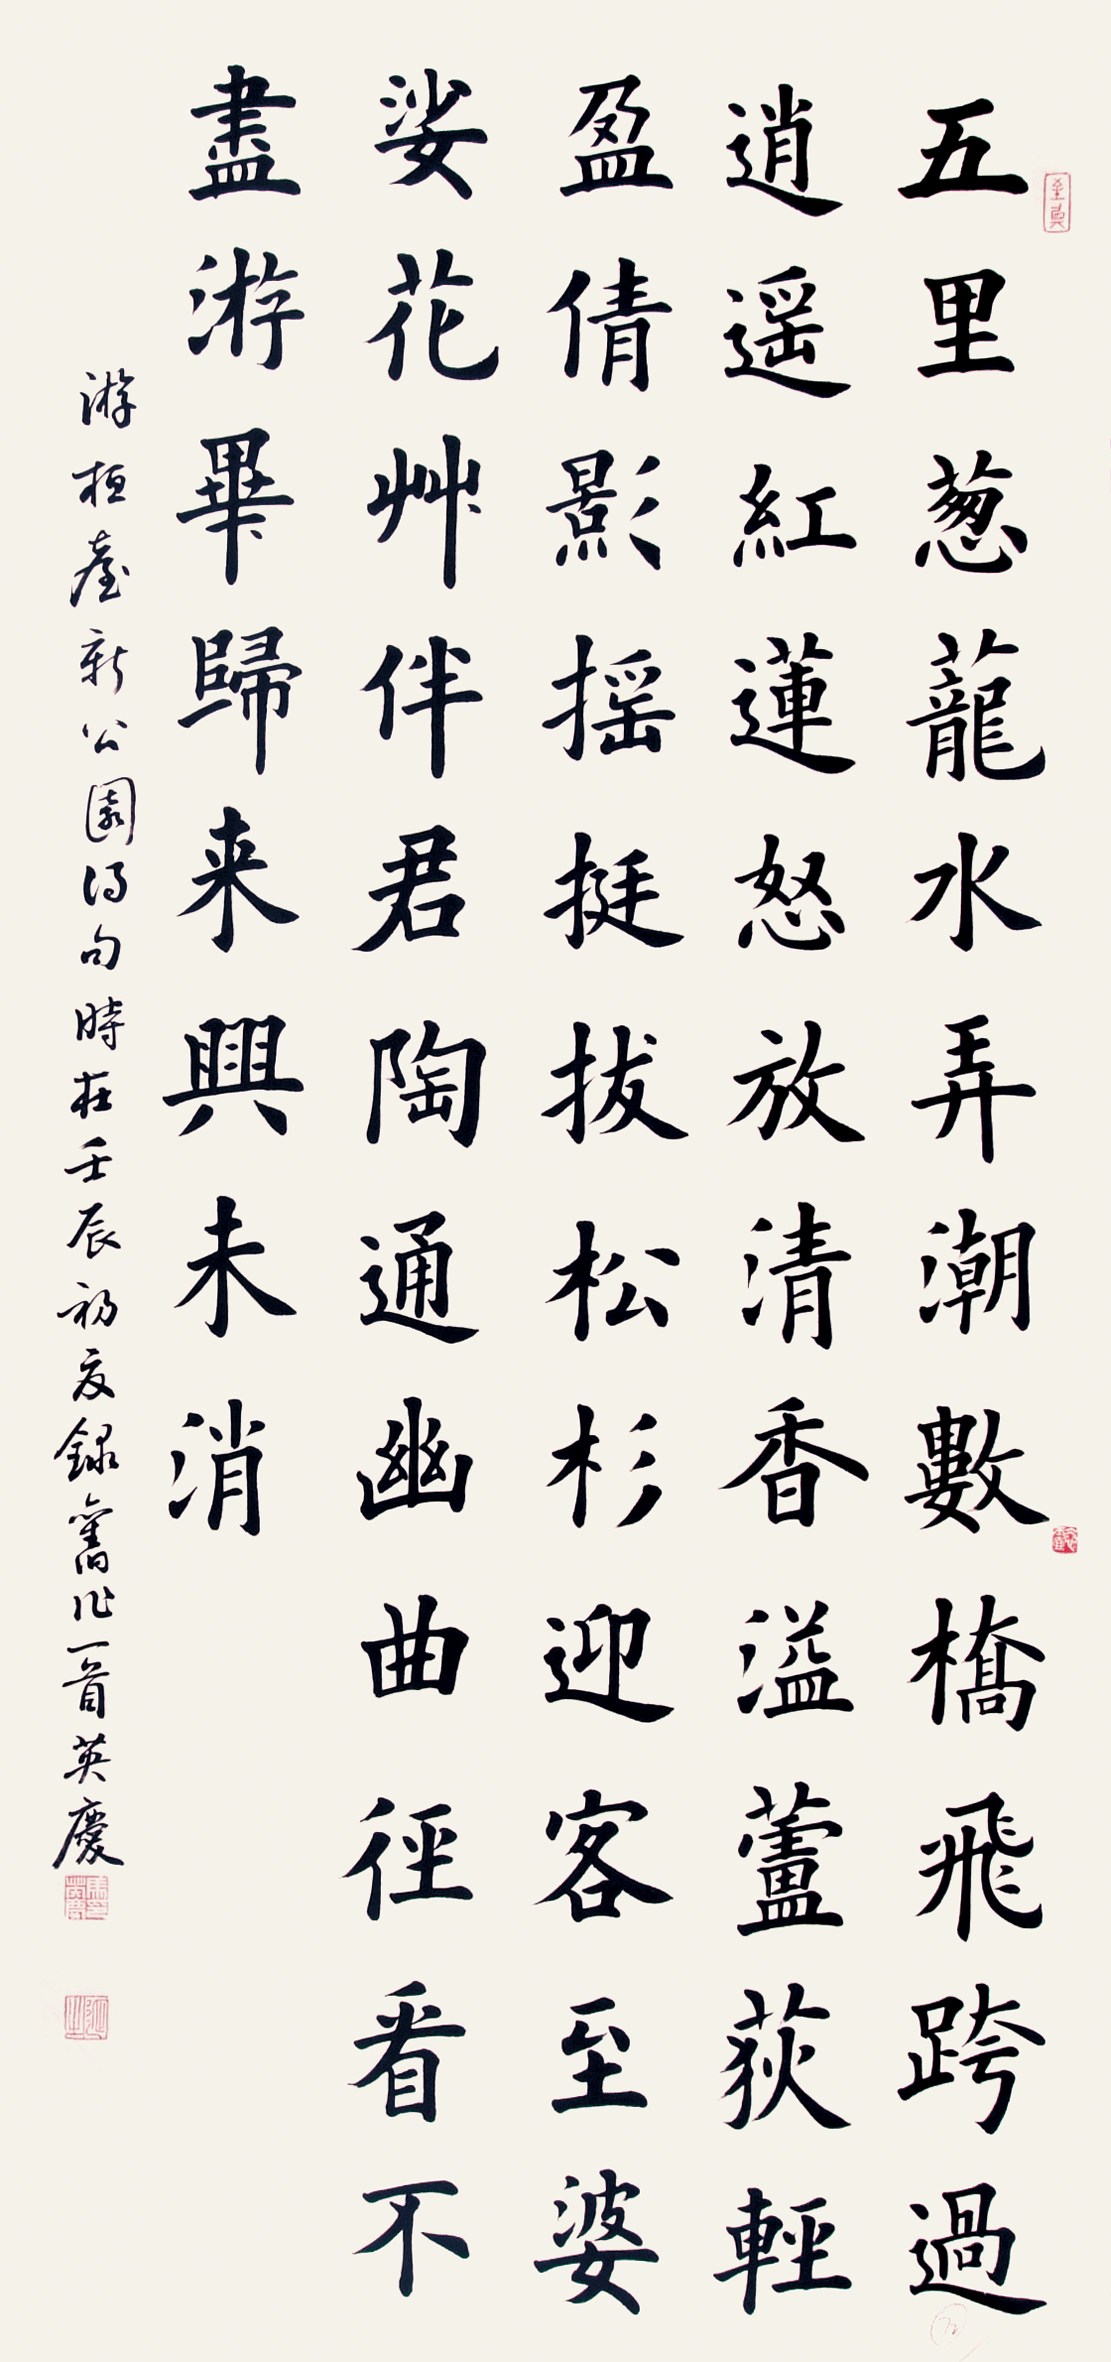 五里葱蘢水弄潮數橋飛跨過
逍遥紅蓮怒放清香溢蘆荻輕
盈倩影摇挺拔松杉迎客至婆
娑花艸伴君陶通幽曲徑看不
盡游畢歸来興未消
游桓臺新公園得句時在壬辰初夏録舊作一首英慶